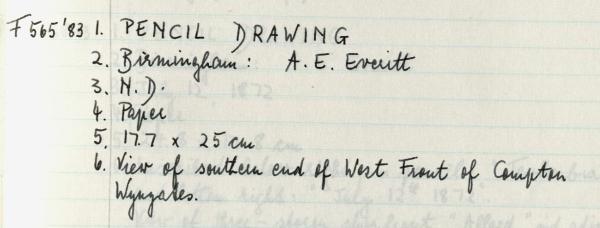 F 565'83 1. PENCIL DRAWING
2. Birmingham: A. E. Everitt
3. N.D.
4. Paper
5. 17.7 x 25 cm
6. View of southern end of West Front of Compton
Wyngates.